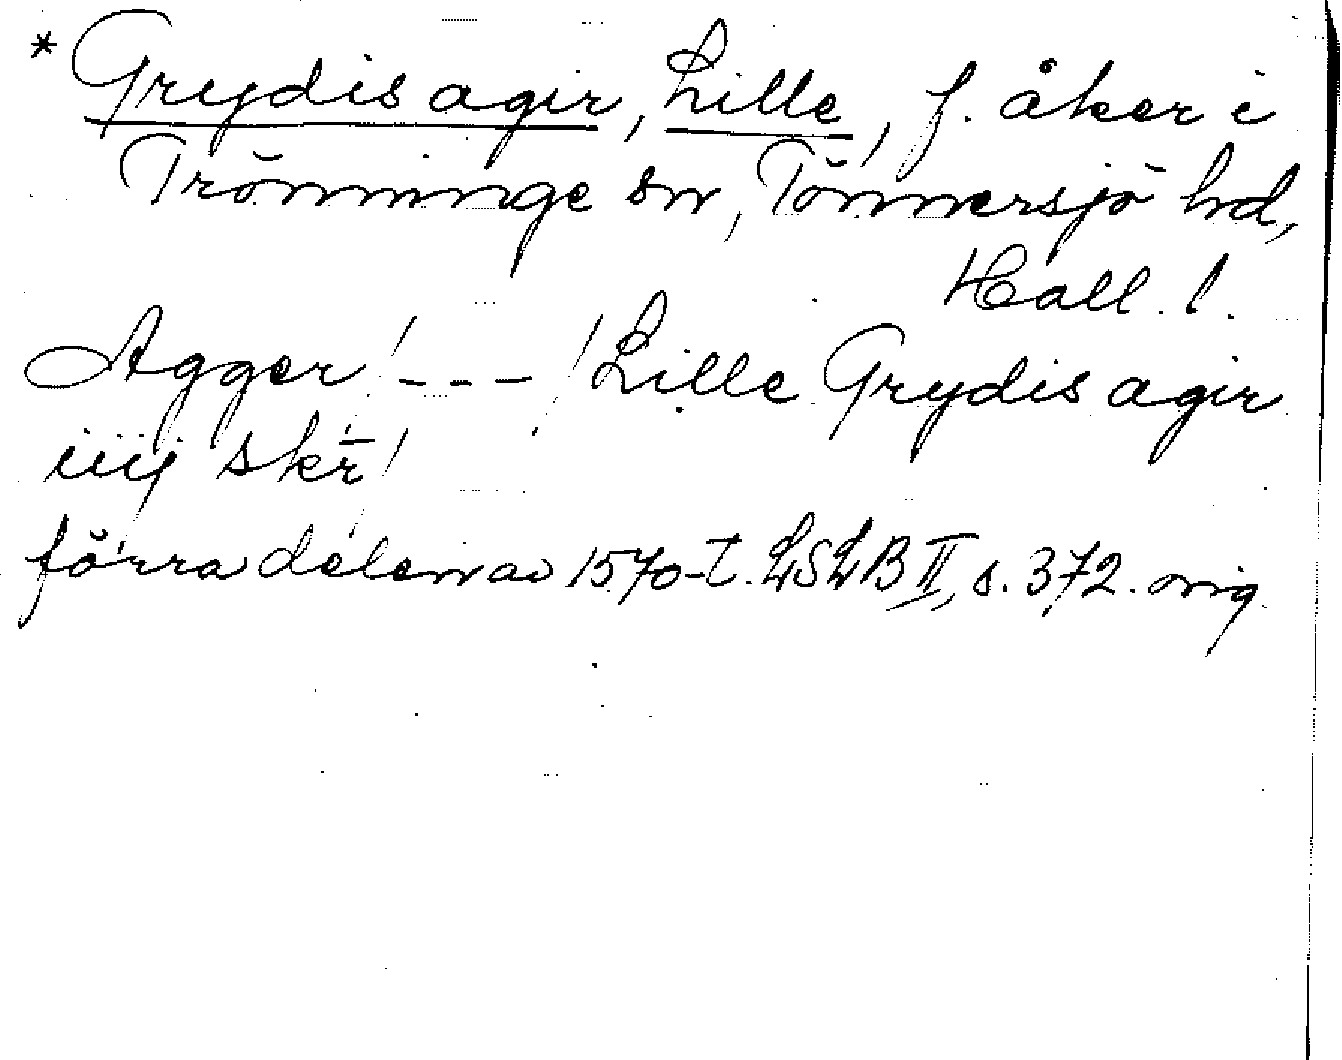 * Grydis agir, Lille, f. åker i
Trönninge sn, Tönnersjö hd,
Hall. l.
Agger / --- / Lille Grydis agir
iiij skr̄ /
förra delen av 1570-t. LSLB II, s. 372. orig.